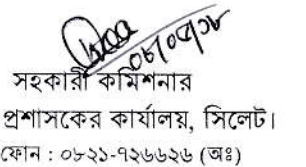 ০৮/০৫/১৮
সহকারী কমিশনার
প্রশাসকের কার্যালয়, সিলেট।
ফোন : ০৮২১-৭২৬৬২৬ (অঃ)